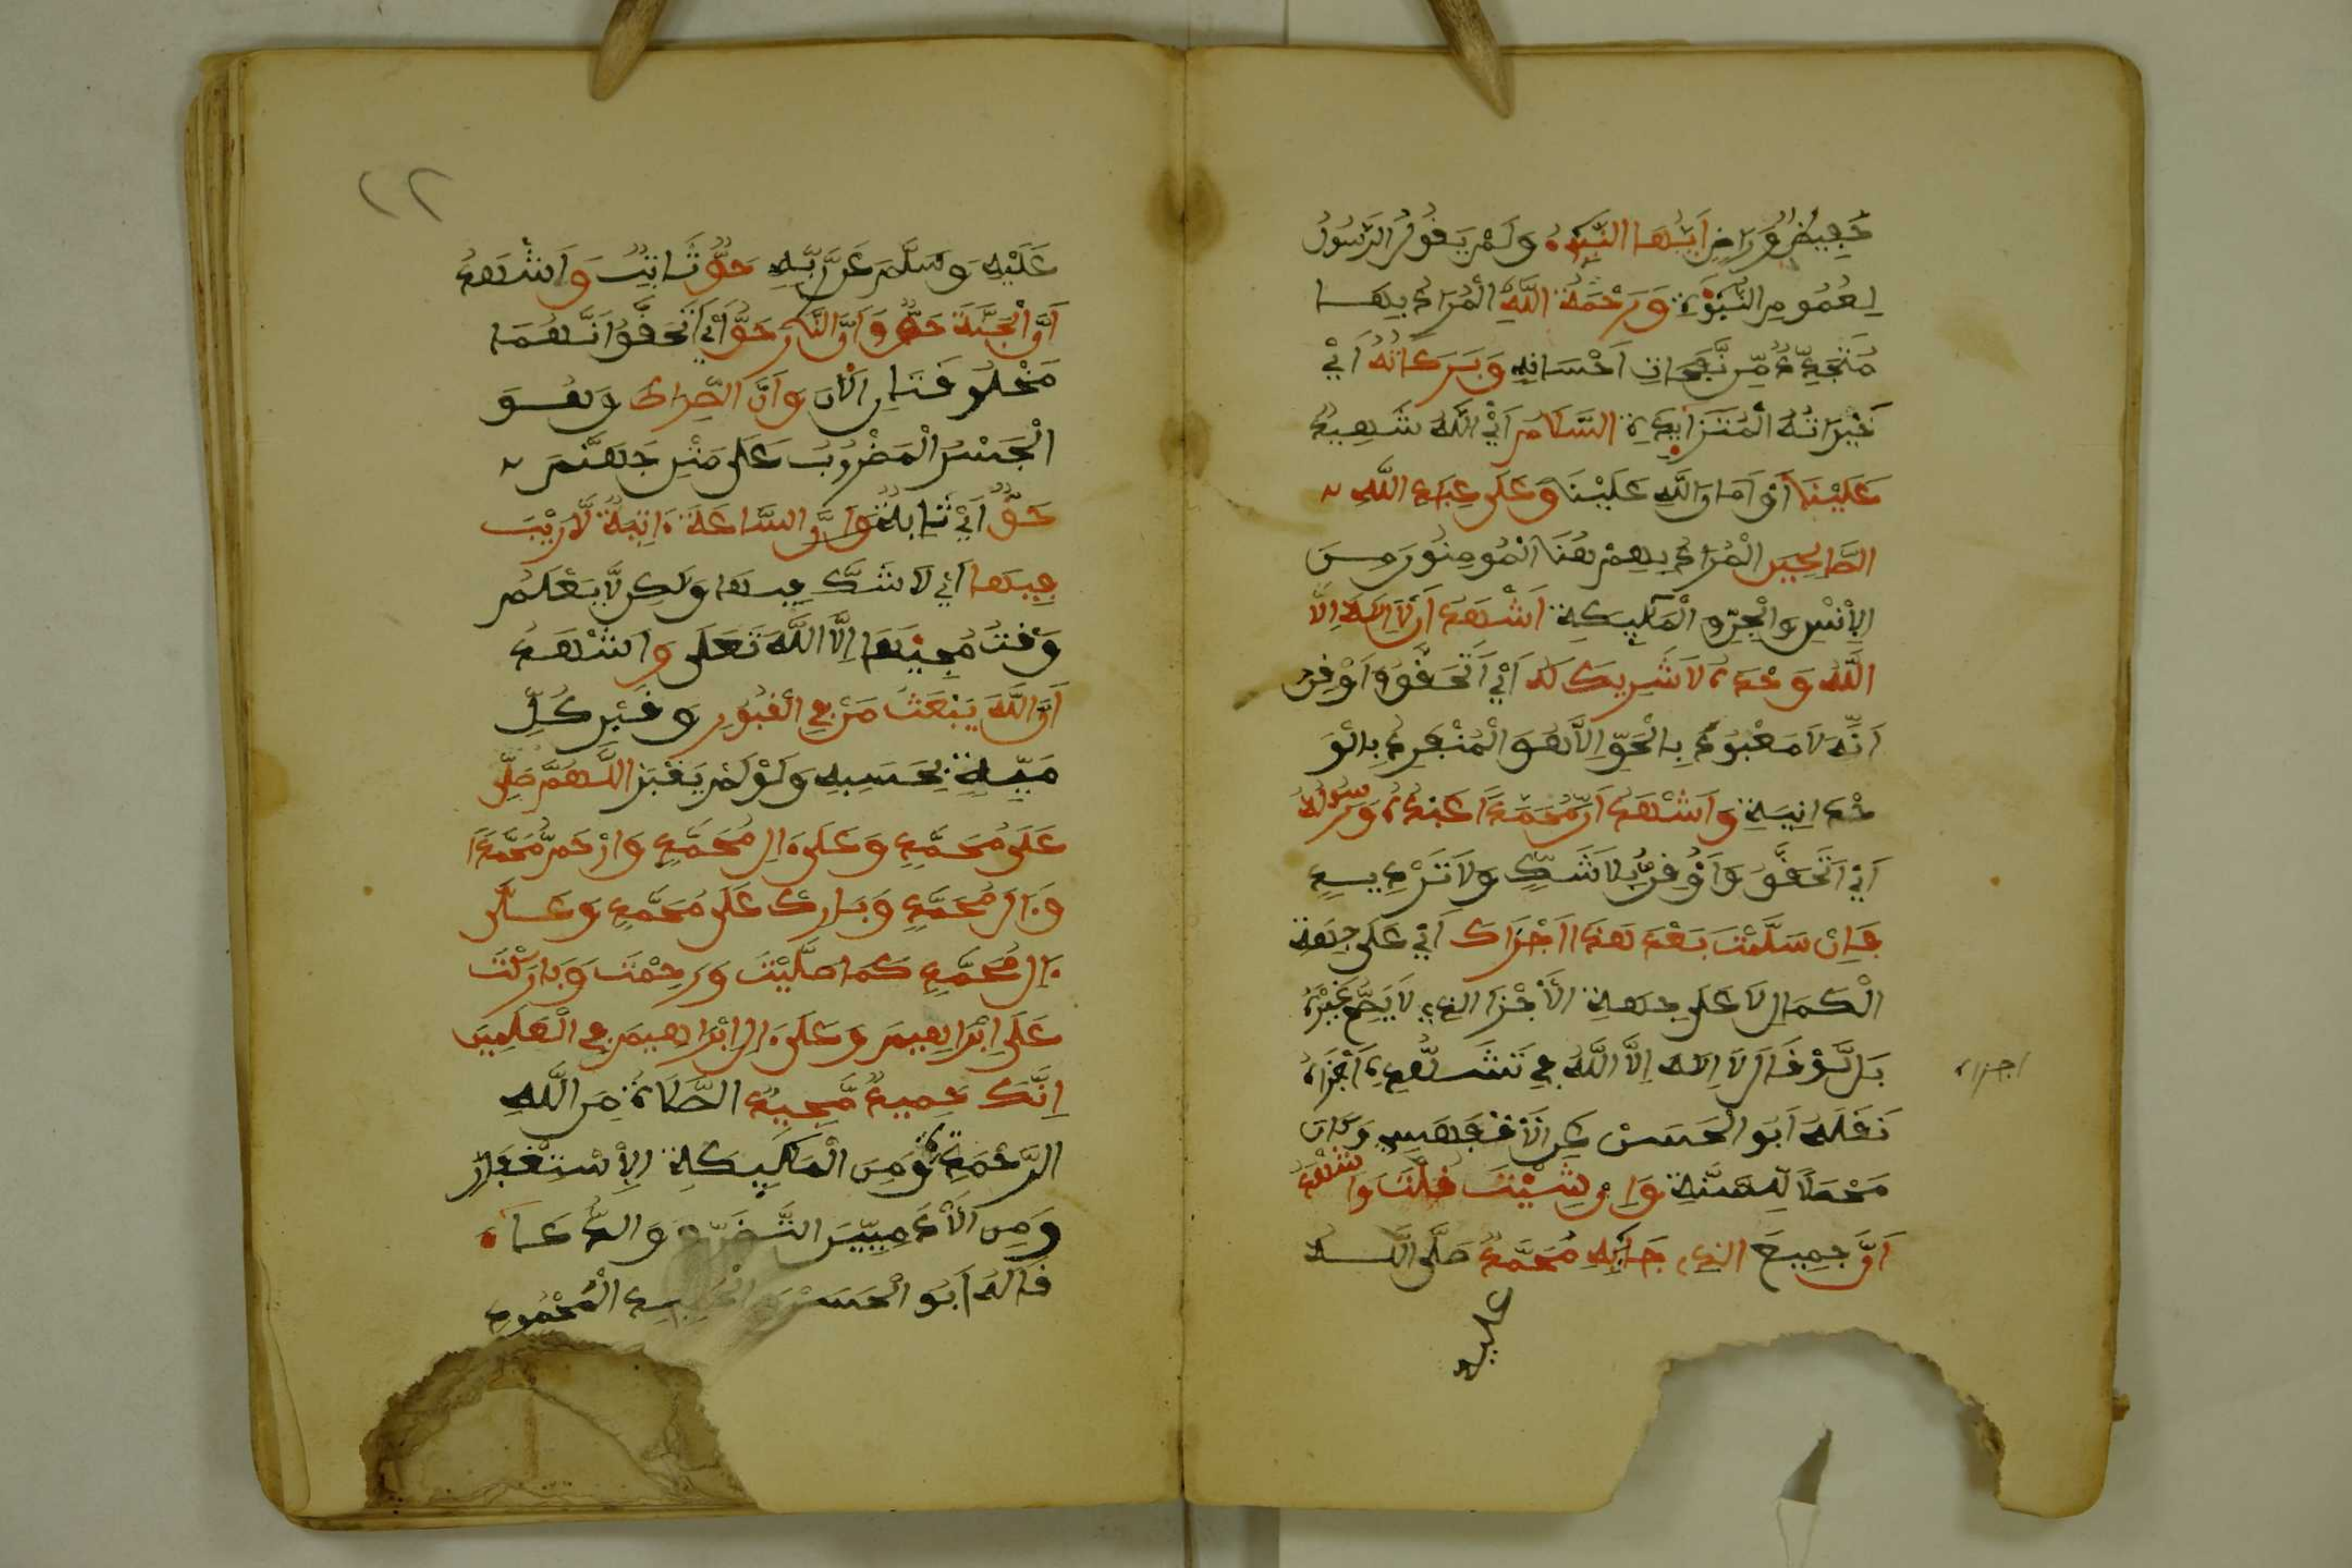 أَيُّهَا النَّبِيُّ وَلَمْ يَقُلِ الرَّسُولُ
لِعُمُومِ النُّبُوَّةِ وَرَحْمَةُ اللَّهِ الْمُرَادُ بِهَا
مُتَجَدِّدٌ مِّن نَّفَحَاتِ احْسَانِهِ وَبَرَكَاتُهُ أَيْ
خَيْرَاتُهُ الْمُتَزَايِدَةِ السَّلَامُ أَيْ اللَّهُ شَهِيدٌ
عَلَيْنَا أَوْ أَمَانُ اللَّهِ عَلَيْنَا وَعَلَى عِبَادِ اللَّهِ
الصَّالِحِينَ الْمُرَادُ بِهِمْ هُنَا الْمُومِنُونَ مِنَ
الْإِنْسِ وَالْجِنِّ وَالْمَلَيِكَةِ أَشْهَدُ أَن لَّا إِلَهَ إِلَّا
اللَّهُ وَحْدَهُ لَا شَرِيكَ لَهُ أَيْ أَتَحَقَّقُ وَأُوقِنُ
أَنَّهُ لَا مَعْبُودَ بِالْحَقِّ إِلَّا هُوَ الْمُنْفَرِدُ بِالْوَ
حْدَانِيَةِ وَأَشْهَدُ أَنَّ مُحَمَّدًا عَبْدُهُ وَرَسُولُهُ
أَيْ أَتَحَقَّقُ وَأُوقِنُ بِلَا شَكٍّ وَلَا تَرْدِيدٍ
فَإِنْ سَلَّمْتَ بَعْدَ هَذَا أَجْزَاكَ أَيْ عَلَى جِهَةِ
الْكَمَالِ لَا عَلَى جِهَةِ الْأَجْزَا الذِي لَا يَصِحُّ غَيْرُهُ
بَل لَّوْ قَالَ لَا إِلَهَ إِلَّا اللَّهُ فِي تَشَهُّدِهِ أَجْزَاهُ
اجزاه
نَقَلَهُ أَبُو الْحَسَنْ عَنِ الْأَقْفَهْسِي وَكَانَ
مَحْصَلًا لِّلسُّنَّةِ وَإِنْ شِئْتَ قُلْتَ وَأَشْهَدُ
أَنَّ جَمِيعَ الذِي جَا بِهِ مُحَمَّدٌ صَلَّى اللَّهُ
عليه
٢٢
عَلَيْهِ وَسَلَّمَ عَن رَّبِّهِ حَقٌّ ثَابِتٌ وَأَشْهَدُ
أَنَّ الْجَنَّةَ حَقٌّ وَأَنَّ النَّارَ حَقٌّ أَيْ أَتَحَقَّقُ أَنَّهُمَا
مَخْلُوقَتَانِ الْأَنَ وَأَنَّ الصِّرَاطَ وَهُوَ
الْجَسْرُ الْمَضْرُوبُ عَلَى مَتْنِ جَهَنَّمَ
حَقٌّ أَيْ ثَابِتٌ وَأَنَّ السَّاعَةَ ءَاتِيَةٌ لَّا رَيْبَ
فِيهَا أَيْ لَا شَكَّ فِيهَا وَلَكِن لَّا يَعْلَمُ
وَقْتَ مَجِيئِهَا إِلَّا اللَّهَ تَعَلَى وَأَشْهَدُ
أَنَّ اللَّهَ يَبْعَثُ مَنْ فِي الْقُبُورِ وَقَبْرِ كُلِّ
مَيِّتٍ بِحَسَبِهِ وَلَوْ لَمْ يُقْبَرْ اللَّهُمَّ صَلِّ
عَلَى مُحَمَّدٍ وَعَلَى ءَالِ مُحَمَّدٍ وَارْحَمْ مُّحَمَّدًا
وَءَالَ مُحَمَّدٍ وَبَارِكْ عَلَى مُحَمَّدٍ وَعَلَى
ءَالِ مُحَمَّدٍ كَمَا صَلَّيْتَ وَرَحِمْتَ وَبَارَكْتَ
عَلَى إِبْرَاهِيمَ وَعَلَى ءَالِ إِبْرَاهِيمَ فِي الْعَلَمِينَ
إِنَّكَ حَمِيدٌ مَّجِيدٌ الصَّلَاةُ مِنَ اللَّهِ
الرَّحْمَةُ وَمِنَ الْمَلَيِكَةِ الْإِسْتِغْفَارُ
وَمِنَ الْأَدَمِيِّينَ التَّضَرُّعُ وَالدُّعَاءُ
قَالَهُ أَبُو الْحَسَنْ الْمَحْمُودِ